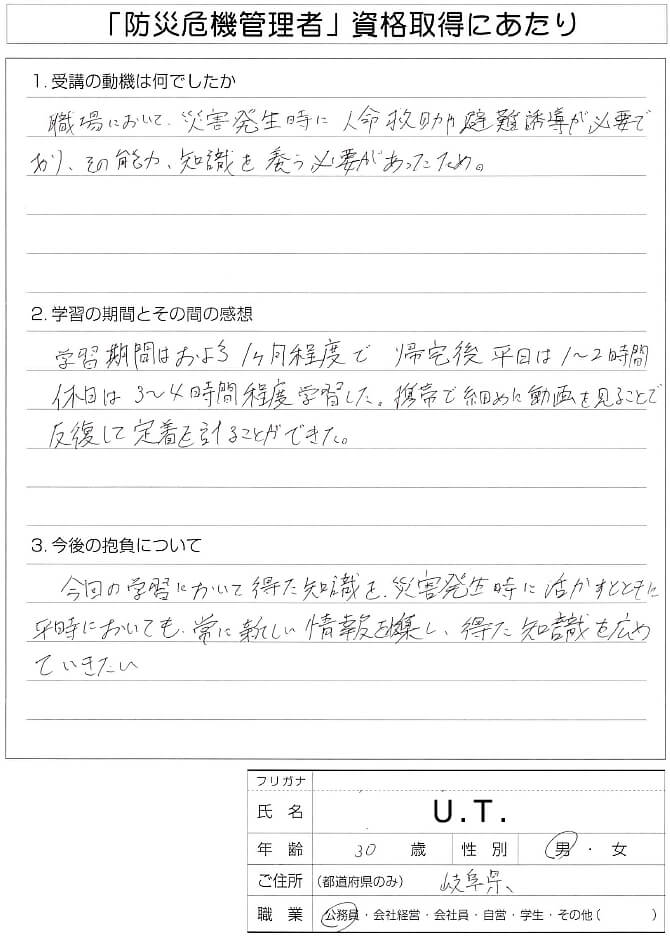 「防災危機管理者」資格取得にあたり
1. 受講の動機は何でしたか
職場において、災害発生時に人命救助や避難誘導が必要で
あり、その能力、知識を養う必要があったため。
2. 学習の期間とその間の感想
学習期間はおよそ1ヶ月程度で 帰宅後 平日は1〜2時間
休日は3〜4時間程度学習した。携帯で細めに動画を見ることで
反復して定着を計ることができた。
3. 今後の抱負について
今回の学習において得た知識を、災害発生時に活かすとともに
平時においても、常に新しい情報を集し、得た知識を広め
ていきたい
フリガナ
氏名 U.T.
年齢 30 歳 性別 男・女
ご住所 (都道府県のみ) 岐阜県、
職業 公務員・会社経営・会社員・自営・学生・その他( )